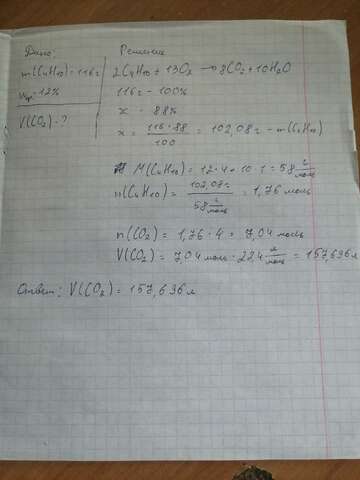 Дано:
m(C₄H₁₀) = 116 г
wпр. = 12%
V(CO₂) - ?
Решение
2C₄H₁₀ + 13O₂ → 8CO₂ + 10H₂O
116 г - 100%
x - 88%
x = 116 · 88 / 100 = 102,08 г - m(C₄H₁₀)
M(C₄H₁₀) = 12 · 4 + 10 · 1 = 58 г/моль
n(C₄H₁₀) = 102,08 г / 58 г/моль = 1,76 моль
n(CO₂) = 1,76 · 4 = 7,04 моль
V(CO₂) = 7,04 моль · 22,4 л/моль = 157,696 л
Ответ: V(CO₂) = 157,696 л